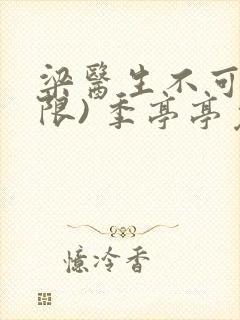 梁醫生不可
限) 季亭亭
憶冷香